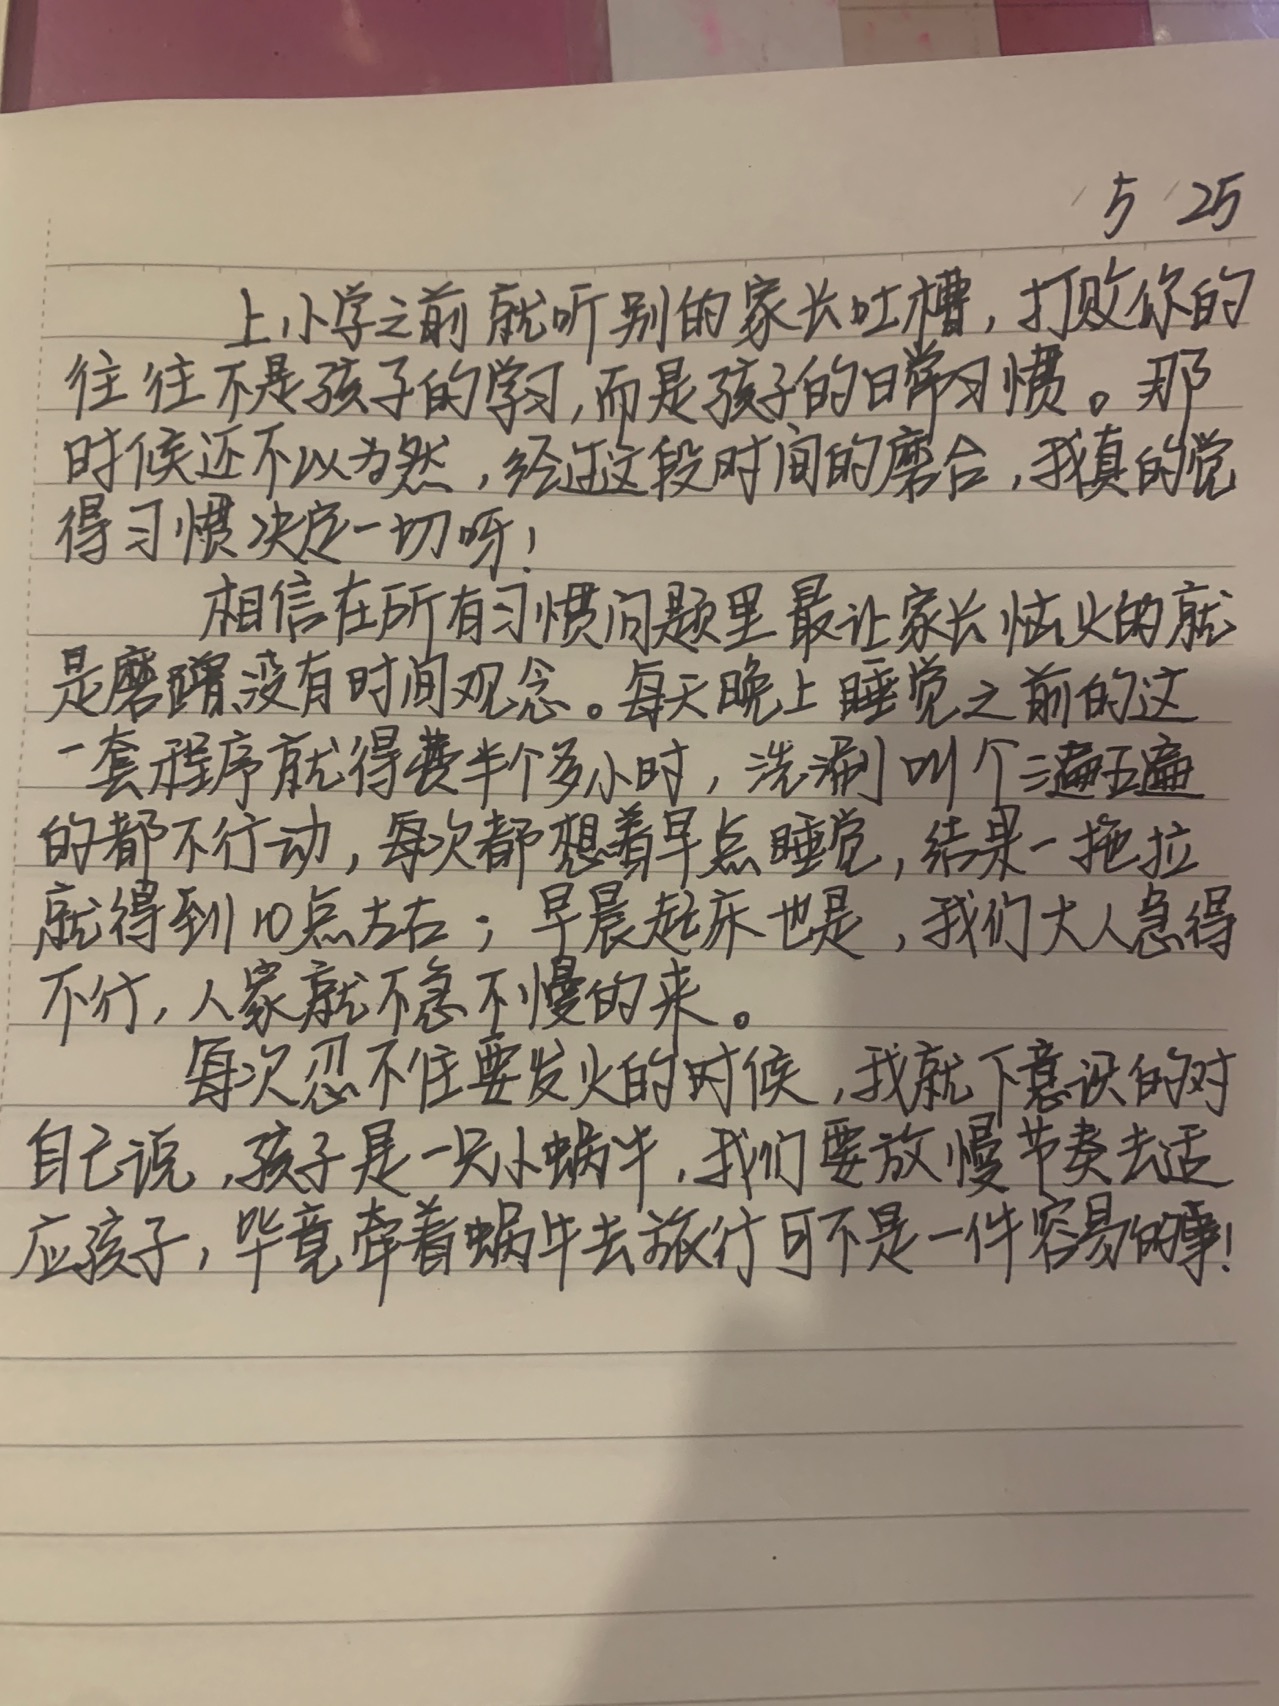 5 25
上小学之前就听别的家长吐槽,打败你的
往往不是孩子的学习,而是孩子的日常习惯。那
时候还不以为然,经过这段时间的磨合,我真的觉
得习惯决定一切呀!
相信在所有习惯问题里最让家长恼火的就
是磨蹭、没有时间观念。每天晚上睡觉之前的这
一套程序就得费半个多小时,洗涮叫个三遍五遍
的都不行动,每次都想着早点睡觉,结果一拖拉
就得到10点左右;早晨起床也是,我们大人急得
不行,人家就不急不慢的来。
每次忍不住要发火的时候,我就下意识的对
自己说,孩子是一只小蜗牛,我们要放慢节奏去适
应孩子,毕竟牵着蜗牛去旅行可不是一件容易的事!